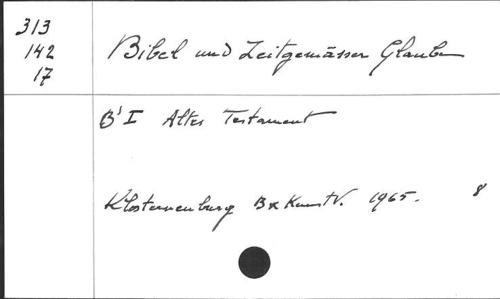 313
142
17
Bibel und Zeitgemässer Glaube
Bd I Altes Testament
Klosterneuburg B x KunstV. 1965. 8